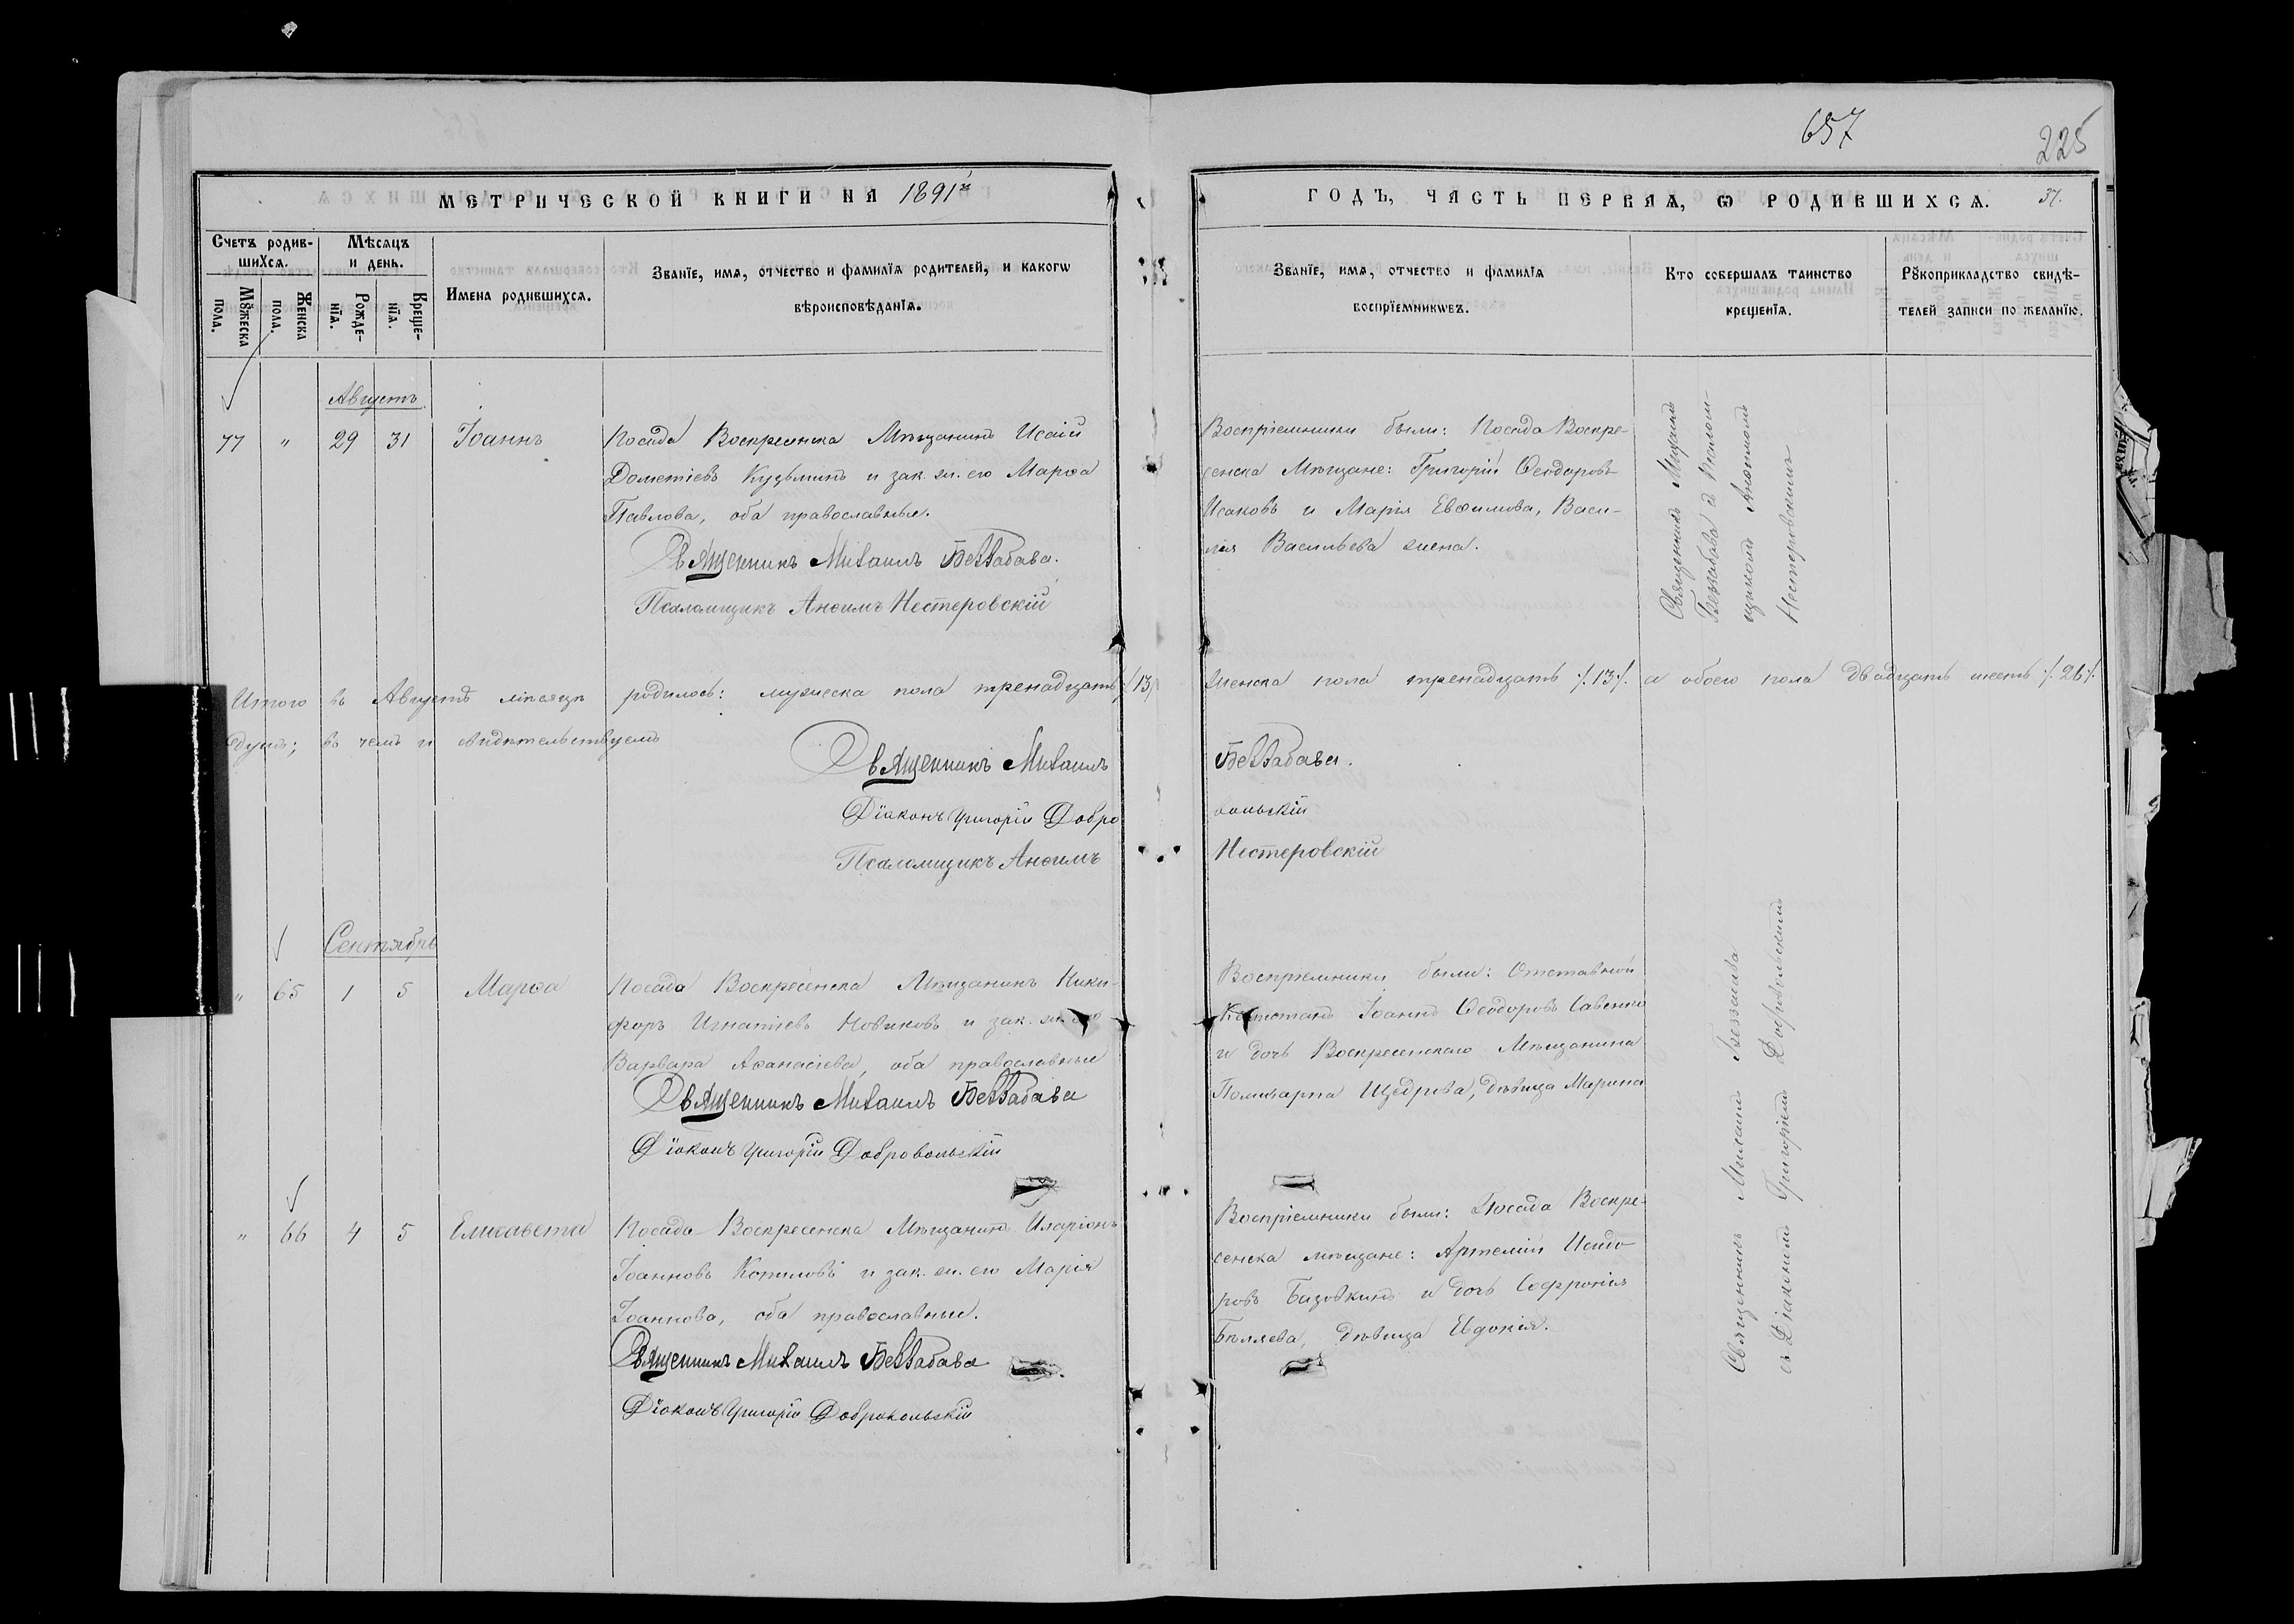 657
225
МЕТРИЧЕСКОЙ КНИГИ НА 1891й
ГОДЪ, ЧАСТЬ ПЕРВАѦ, Ѡ РОДИВШИХСѦ. 37.
Счетъ родив-
шихсѧ.
Мѣсѧцъ
и день.
Мꙋжеска
пола.
Женска
пола.
Рожде-
нїѧ.
Креще-
нїѧ.
Имена родившихсѧ.
Званїе, имѧ, отчество и фамилїѧ родителей, и какогѡ
вѣроисповѣданїѧ.
Званїе, имѧ, отчество и фамилїѧ
воспрїемникѡвъ.
Кто совершалъ таинство
крещенїѧ.
Рꙋкоприкладство свидѣ-
телей записи по желанїю.
Августъ
77 " 29 31 Іоаннъ
Посада Воскресенска Мѣщанинъ Исаій
Дометіевъ Кузьминъ и зак. ж. его Марѳа
Павлова, оба православные.
Священникъ Михаилъ Беззабава.
Псаломщикъ Анѳимъ Нестеровскій
Воспріемники были: Посада Воскре-
сенска Мѣщане: Григорій Ѳеодоровъ
Исаковъ и Марія Евѳимова, Васи-
лія Васильева жена.
Священникъ Михаилъ
Беззабава съ Псалом-
щикомъ Анѳимомъ
Нестеровскимъ
Итого въ Августѣ мѣсяцѣ родилось: мужеска пола тренадцать /13/ женска пола тренадцать ./.13./. а обоего пола двадцать шесть ./.26./.
душъ; въ чемъ и свидѣтельствуемъ
Священникъ Михаилъ Беззабава.
Діаконъ Григорій Добровольскій
Псаломщикъ Анѳимъ Нестеровскій
Сентябрь
" 65 1 5 Марѳа
Посада Воскресенска Мѣщанинъ Ники-
форъ Игнатіевъ Новиковъ и зак. ж. его
Варвара Аѳанасіева, оба православные
Священникъ Михаилъ Беззабава
Діаконъ Григорій Добровольскій
Воспріемники были: Отставной
Іоаннъ Ѳеодоровъ Савенко
и дочь Воскресенскаго Мѣщанина
Поликарпа Щедрова, дѣвица Марина
" 66 4 5 Елисавета
Посада Воскресенска Мѣщанинъ Иларіонъ
Іоанновъ Копиловъ и зак. ж. его Марія
Іоаннова, оба православные.
Священникъ Михаилъ Беззабава
Діаконъ Григорій Добровольскій
Воспріемники были: Посада Воскре-
сенска мѣщане: Артемій Исидо-
ровъ Бизовкинъ и дочь Софронія
Бѣляева, дѣвица Евдокія.
Священникъ Михаилъ Беззабава
съ Діакономъ Григоріемъ Добровольскимъ